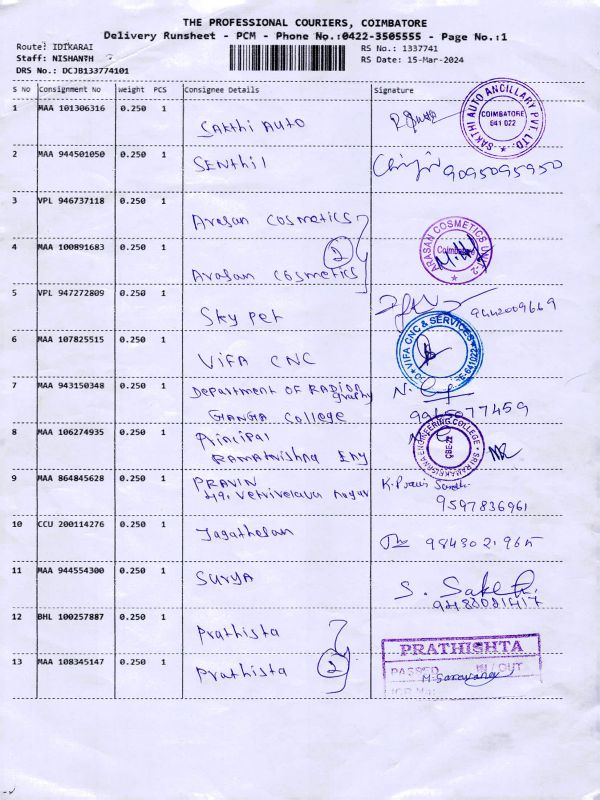 THE PROFESSIONAL COURIERS, COIMBATORE
Delivery Runsheet - PCM - Phone No.:0422-3505555 - Page No.:1
Route: IDIKARAI
RS No.: 1337741
Staff: NISHANTH
RS Date: 15-Mar-2024
DRS No.: DCJB133774101
S No Consignment No Weight PCS Consignee Details Signature
1 MAA 101306316 0.250 1
Sakthi Auto
SAKTHI AUTO ANCILLARY PVT. LTD.
COIMBATORE
641 022
2 MAA 944501050 0.250 1
Senthil
9095095950
3 VPL 946737118 0.250 1
Arasan Cosmetics
4 MAA 100891683 0.250 1
2
Arasan Cosmetics
ARASAN COSMETICS UNIT-2
Coimbatore
5 VPL 947272809 0.250 1
Sky pet
9442009669
6 MAA 107825515 0.250 1
ViFA CNC
VIFA CNC & SERVICES
641022
7 MAA 943150348 0.250 1
Department of Radio
graphy
Ganga College
8 MAA 106274935 0.250 1
Principal
Ramakrishna Eng
SRI RAMAKRISHNA ENGINEERING COLLEGE
CBE-22
9 MAA 864845628 0.250 1
PRAVIN
9597836961
10 CCU 200114276 0.250 1
Jagathelan
11 MAA 944554300 0.250 1
Surya
S.
12 BHL 100257887 0.250 1
Prathista
13 MAA 108345147 0.250 1
Prathista
2
PRATHISHTA
PASSED IN / OUT